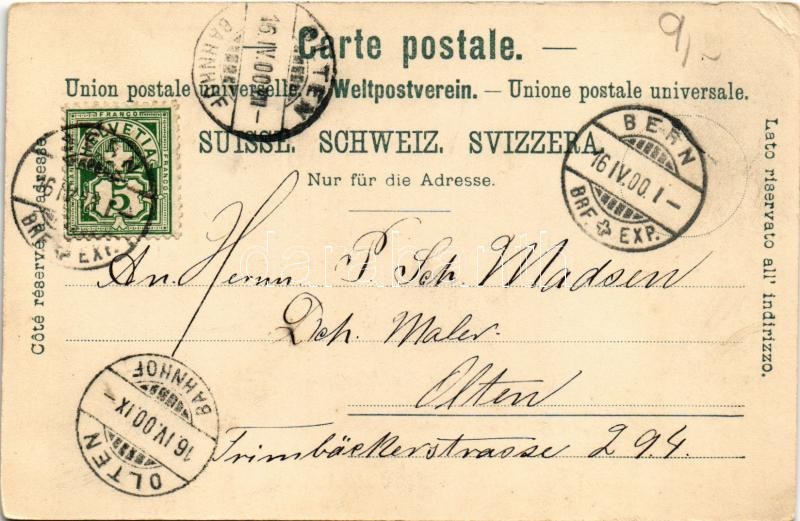 Carte postale. —
Union postale universelle. — Weltpostverein. — Unione postale universale.
SUISSE. SCHWEIZ. SVIZZERA.
Nur für die Adresse.
Côté réservé à l'adresse.
Lato riservato all' indirizzo.
FRANCO
HELVETIA
5
OLTEN
16.IV.00.
BAHNHOF
BERN
16.IV.00.1–
BRF. EXP.
BRF. EXP.
An Herrn P. Sch. Madsen
Dch. Maler.
Olten
Trimbäckerstrasse 294.
OLTEN
16.IV.00.IX–
BAHNHOF
darabanth